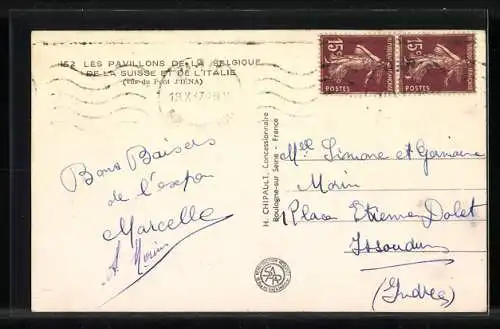 152 LES PAVILLONS DE LA BELGIQUE
DE LA SUISSE ET DE L'ITALIE
(vus du Pont d'IÉNA)
15c 15c
POSTES POSTES
H. CHIPAULT, Concessionnaire
Boulogne-sur Seine - France
Bons Baisers
de l'expo
Marcelle
A. Morin
Melle Simone et Germaine
Morin
1 Place Etienne Dolet
Issoudun
(Indre)